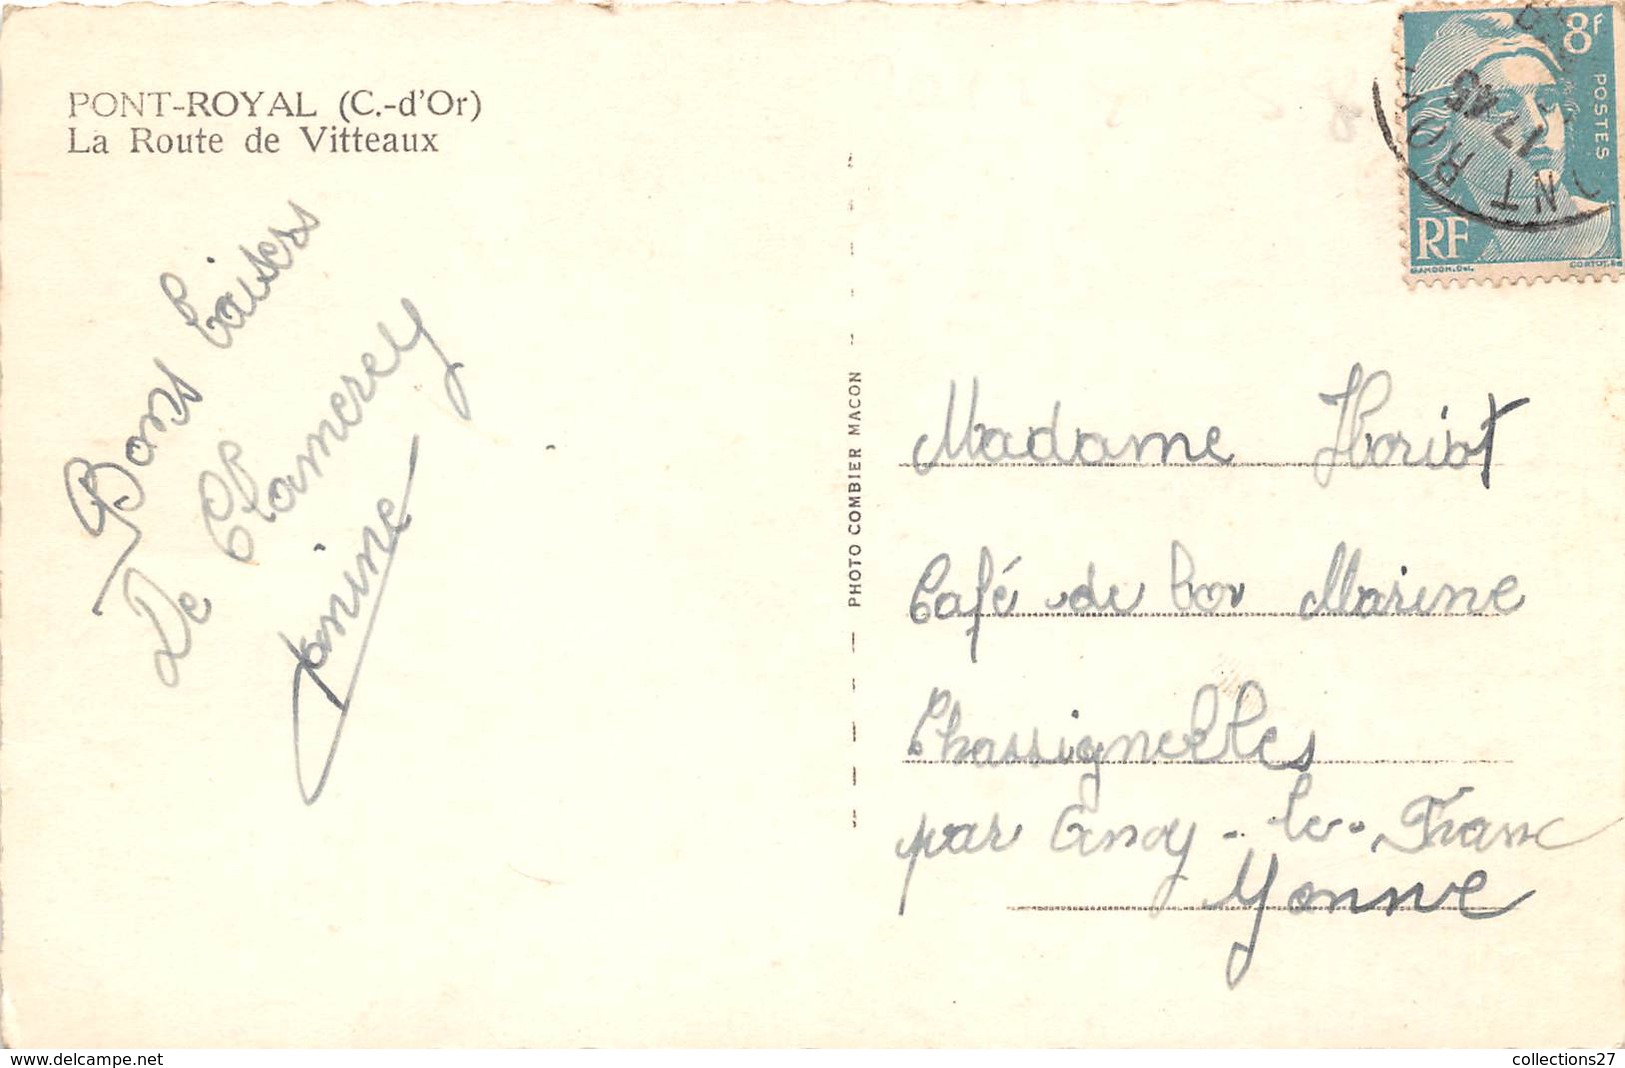 PONT-ROYAL (C.-d'Or)
La Route de Vitteaux
Bons baisers
De Clamerey
Janine
PHOTO COMBIER MACON
8F
POSTES
RF
GANDON.Del.
CORTOT.Sc
NT RO
17 45
Madame Horiot
Café de la Marine
Chassignelles
par Ancy-le-Franc
Yonne
www.delcampe.net
collections27